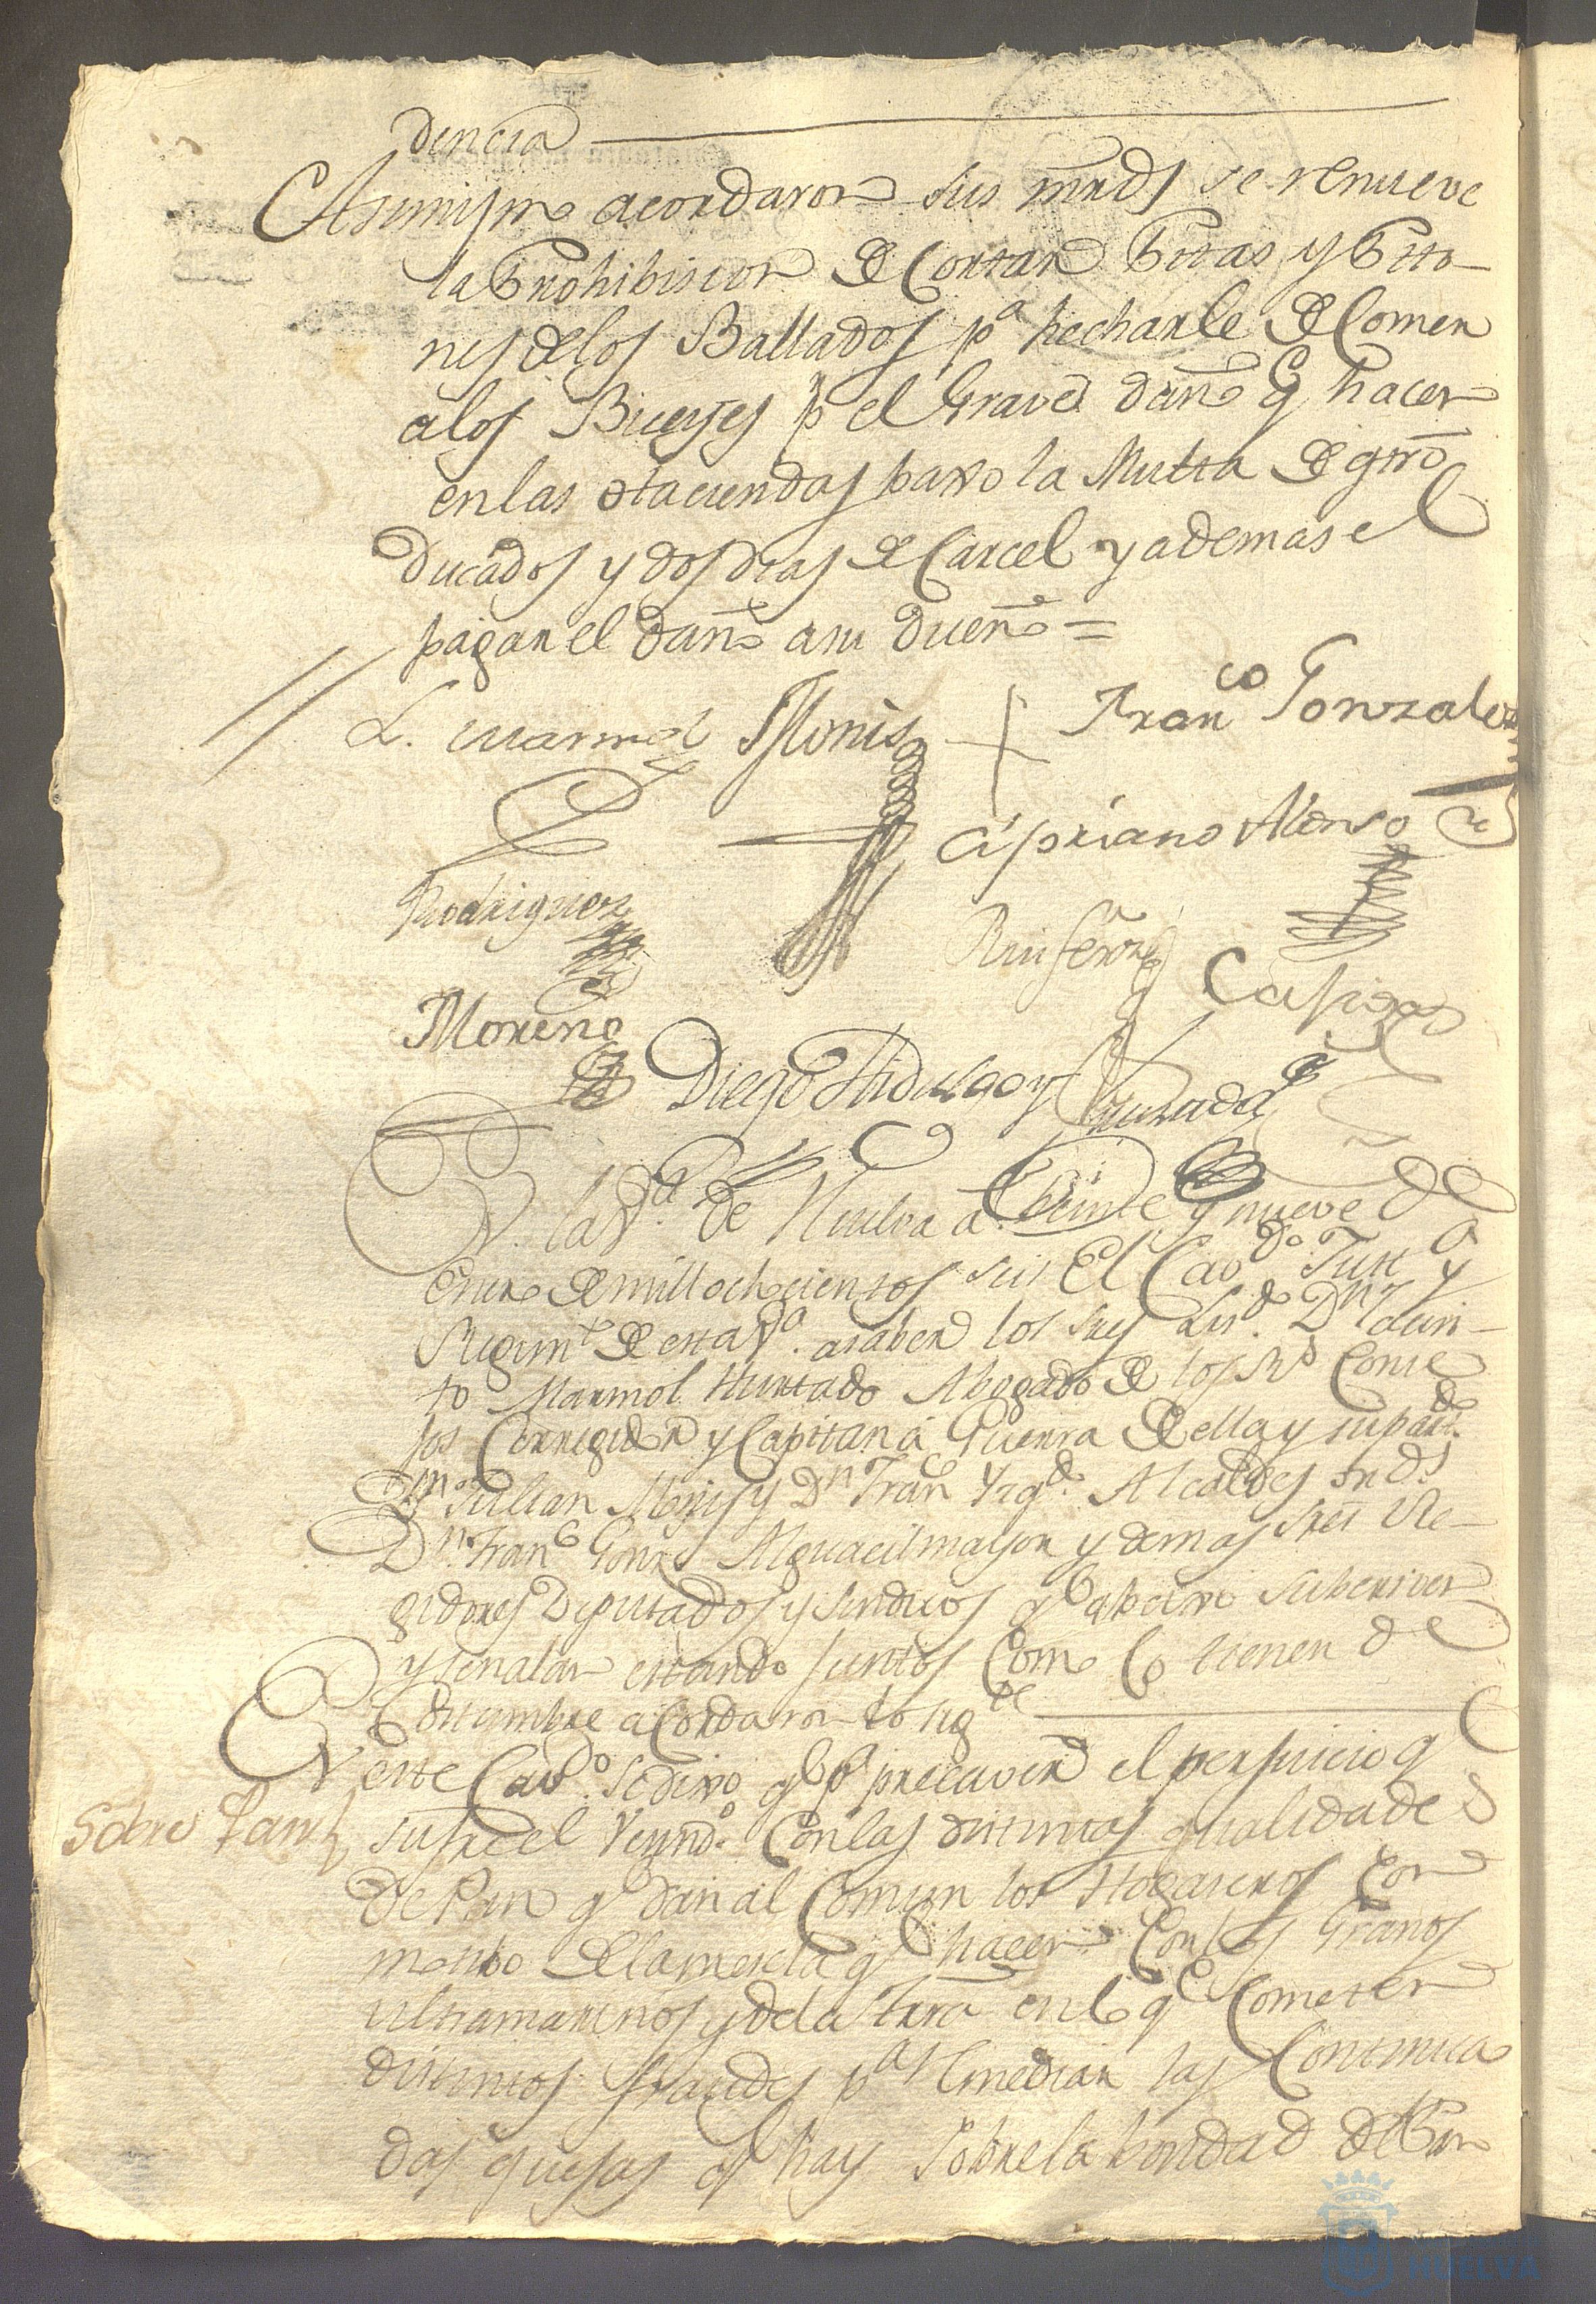 dencia
Asimismo acordaron sus mrds se renueve
la Prohibision de Cortar Pitas y Pito-
nes de los Ballados pa hecharle de Comer
a los Bueyes p el Grave daño q hacen
en las Haciendas baxo la Multa de
Ducados y dos dias de Carcel y ademas el
pagar el daño a su dueño =
L. Marmol Monis Franco Gonzalez
Cipriano Alonso
Rodriguez
Moreno
Diego Hidalgo y Quesada
En la Va de Huelva a Veinte y nueve de
Enero de mill ochocientos seis El Cavdo Justa y
Regimto de esta Va. a saber los sres Lisdo. Dn Jacin-
to Marmol Hurtado Abogado de los Rs Conse
jos Corregidor y Capitan a Guerra de ella y su partdo
Dn Julian Monis y Dn Franco Alcaldes ords
Dn. Franco Gonzs Alguacil mayor y demas sres Re-
gidores Diputados y Sindicos q abaxo subscriven
y señalan estando juntos Como Lo tienen de
Costumbre acordaron lo sigte
En este Cavdo. se dixo qe pa precaver el perjuicio q
Sobre Pan
sufre el Vecindo. Con las distintas qualidades
de Pan q dan al Comun los Hogaseros Con
motibo de la mescla q hacen Con los Granos
ultramarinos y de la Tierra en lo qe Cometen
distintos fraudes pa Remediar las Continua
das quejas q hay sobre la bondad del Pan
HUELVA